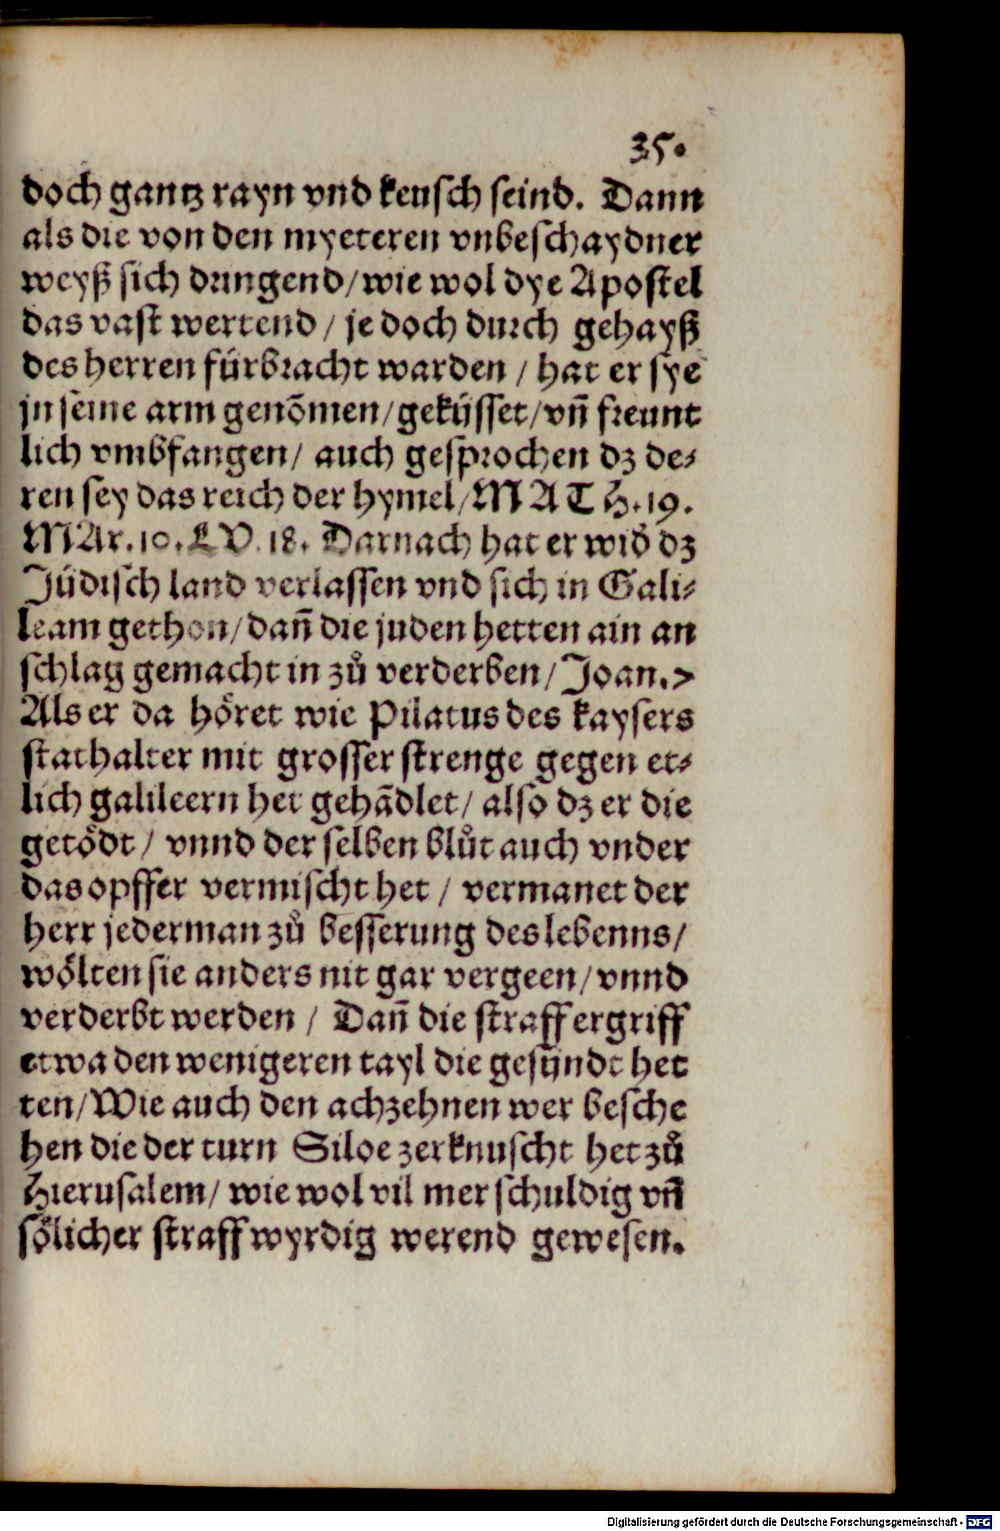 35.
doch gantz rayn vnd keusch seind. Dann
als die von den myeteren vnbeschaydner
weyß sich dringend/wie wol dye Apostel
das vast wertend / je doch durch gehayß
des herren fürbracht warden / hat er sye
jn seine arm genõmen/geküsset/vñ freunt
lich vmbfangen/ auch gesprochen dz de⸗
ren sey das reich der hymel/MATH.19.
MAr.10.LV.18. Darnach hat er wid̃ dz
Jüdisch land verlassen vnd sich in Gali⸗
leam gethon/dañ die juden hetten ain an
schlag gemacht in zů verderben/Joan.7
Als er da höret wie Pilatus des kaysers
stathalter mit grosser strenge gegen et⸗
lich galileern het gehãdlet/ also dz er die
getödt / vnnd der selben blůt auch vnder
das opffer vermischt het / vermanet der
herr jederman zů besserung des lebenns/
wölten sie anders nit gar vergeen/vnnd
verderbt werden / Dañ die straff ergriff
etwa den wenigeren tayl die gesündt het
ten/Wie auch den achzehnen wer besche
hen die der turn Siloe zerknuscht het zů
Hierusalem/ wie wol vil mer schuldig vñ
sölicher straff wyrdig werend gewesen.
Digitalisierung gefördert durch die Deutsche Forschungsgemeinschaft - DFG